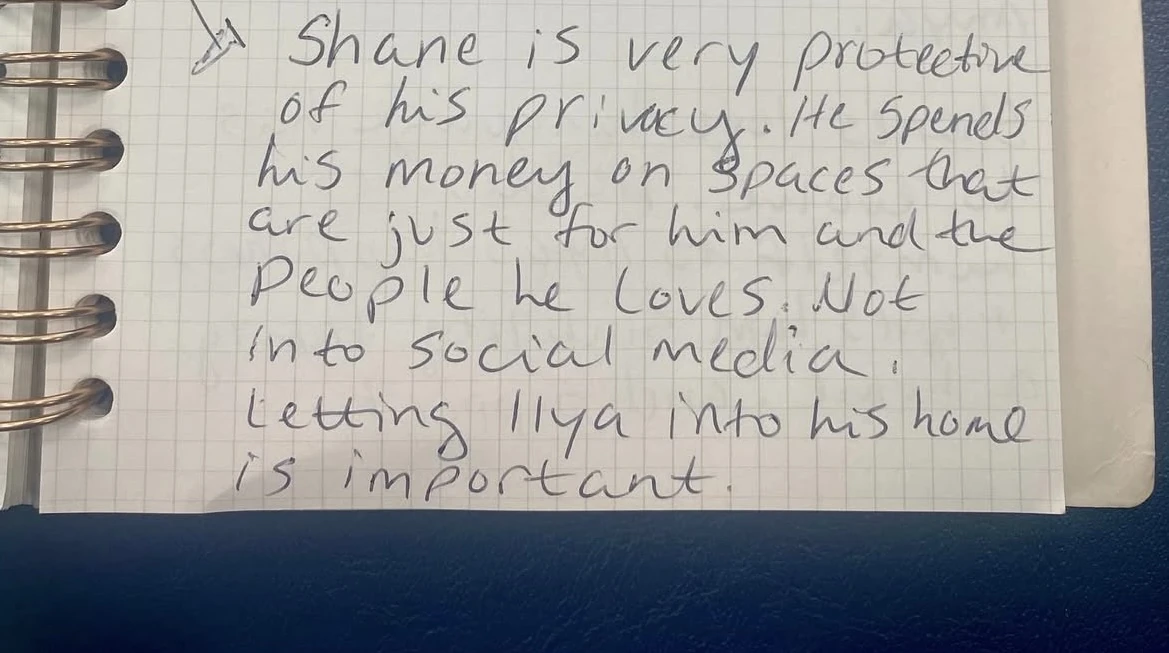 Shane is very protective
of his privacy. He spends
his money on spaces that
are just for him and the
people he loves. Not
into social media.
Letting Ilya into his home
is important.